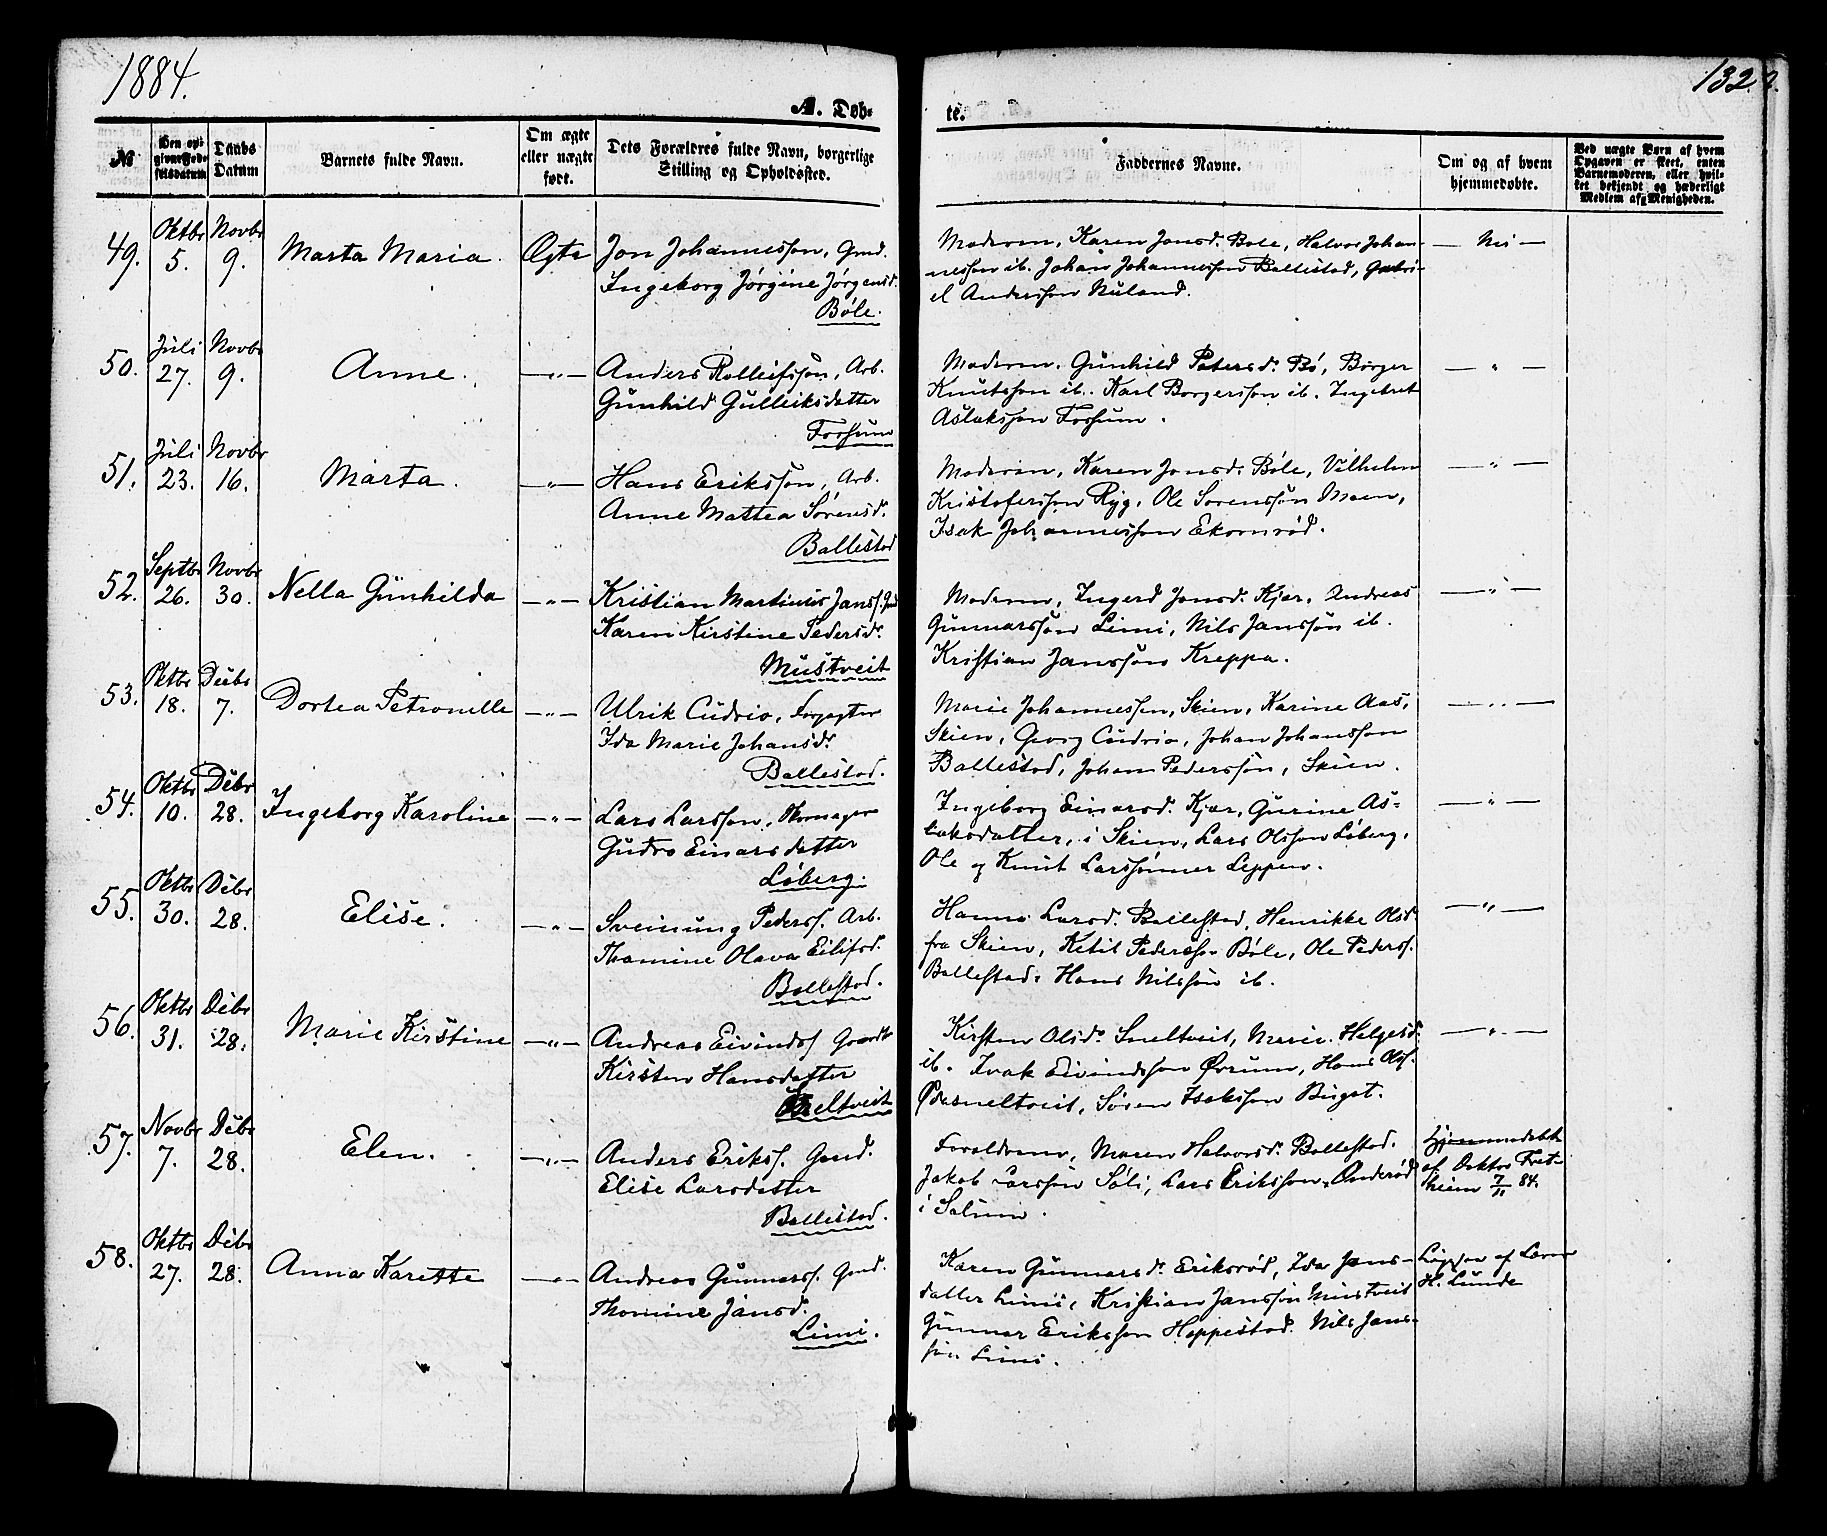 1884.
132.
A. Døb-
te.
№
Den opgivne Fødselsdatum
Daabs Datum
Barnets fulde Navn.
Om ægte eller uægte født.
Dets Forældres fulde Navn, borgerlige Stilling og Opholdssted.
Faddernes Navne.
Om og af hvem hjemmedøbte.
Ved uægte Barn af hvem Opgaven er skeet, enten Barnemoderen, eller hvilket bekjendt og hæderligt Medlem af Menigheden.
49.
Oktbr 5.
Novbr 9.
Marta Maria.
Ægte
Jon Johannessøn, Gmd.
Ingeborg Jørgine Jørgensd.
Bøle.
Moderen, Karen Jonsd. Bøle, Halvor Johan-
nessøn ib. Johan Johannessøn Ballestad, Gabri-
el Anderssøn Nuland.
— Nei —
50.
Juli 27.
Novbr 9.
Anne.
— " —
Anders Rolleifssøn, Arb.
Gunhild Gulleiksdatter
Fossum
Moderen. Gunhild Petersd. Bø, Børger
Knutssøn ib. Karl Børgerssøn ib. Ingebret
Aslakssøn Fossum.
— " —
51.
Juli 23.
Novbr 16.
Marta.
— " —
Hans Erikssøn, Arb.
Anne Mattea Sørensd.
Ballestad
Moderen, Karen Jonsd. Bøle, Vilhelm
Kristoferssøn Ryg, Ole Sørenssøn Moen,
Isak Johannessøn Ekornrød.
— " —
52.
Septbr 26.
Novbr 30.
Nella Gunhilda
— " —
Kristian Martinius Janss. Gmd
Karen Kirstine Pedersd.
Mustveit
Moderen, Ingerd Jonsd. Kjær, Andreas
Gunnarssøn Limi, Nils Janssøn ib.
Kristian Janssøn Kreppa.
— " —
53.
Oktbr 18.
Debr 7.
Dortea Petronelle
— " —
Ulrik Cudrio, Forpagter
Ida Marie Johansdr
Ballestad.
Marie Johannessen, Skien, Karine Aas,
Skien, Georg Cudrio, Johan Johanssøn
Ballestad, Johan Pederssøn, Skien.
— " —
54.
Oktbr 10.
Debr 28.
Ingeborg Karoline
— " —
Lars Larssøn, Skomager
Gudro Einarsdatter
Løberg.
Ingeborg Einarsd. Kjær, Gurine As-
laksdatter, i Skien, Lars Olssøn Løberg,
Ole og Knut Larssønner Leppen.
— " —
55.
Oktbr 30.
Debr 28.
Elise.
— " —
Sveinung Pederss. Arb.
Thomine Olava Eilifsd.
Ballestad.
Hanna Larsd. Ballestad, Henrikke Olsd
fra Skien, Ketil Pederssøn Bøle, Ole Pederss.
Ballestad, Hans Nilssøn ib.
— " —
56.
Oktbr 31.
Debr 28.
Marie Kirstine
— " —
Andreas Eivindss Gaardb
Kirsten Hansdatter
Sneltveit
Kirsten Olsdr Sneltveit, Marie Helgesd.
ib. Isak Eivindssøn Øvrum, Hans Olss.
Ødesneltveit, Søren Isakssøn Bugot.
— " —
57.
Novbr 7.
Debr 28.
Elen.
— " —
Anders Erikss. Gmd.
Elise Larsdatter
Ballestad.
Forældrene, Maren Halvorsd. Ballestad.
Jakob Larssøn Søli, Lars Erikssøn Underød
i Solum.
Hjemmedøbt
af Doktor Fret-
heim 7/11 84.
58.
Oktbr 27.
Debr 28.
Anna Karette
— " —
Andreas Gunnarss. Gmd.
Thomine Jansd.
Limi.
Karen Gunnarsdr Eriksrød, Ida Jans-
datter Limi, Kristian Janssøn Mustveit
Gunnar Erikssøn Heppestad. Nils Jans-
søn Limi.
af Lærer
H. Lunde